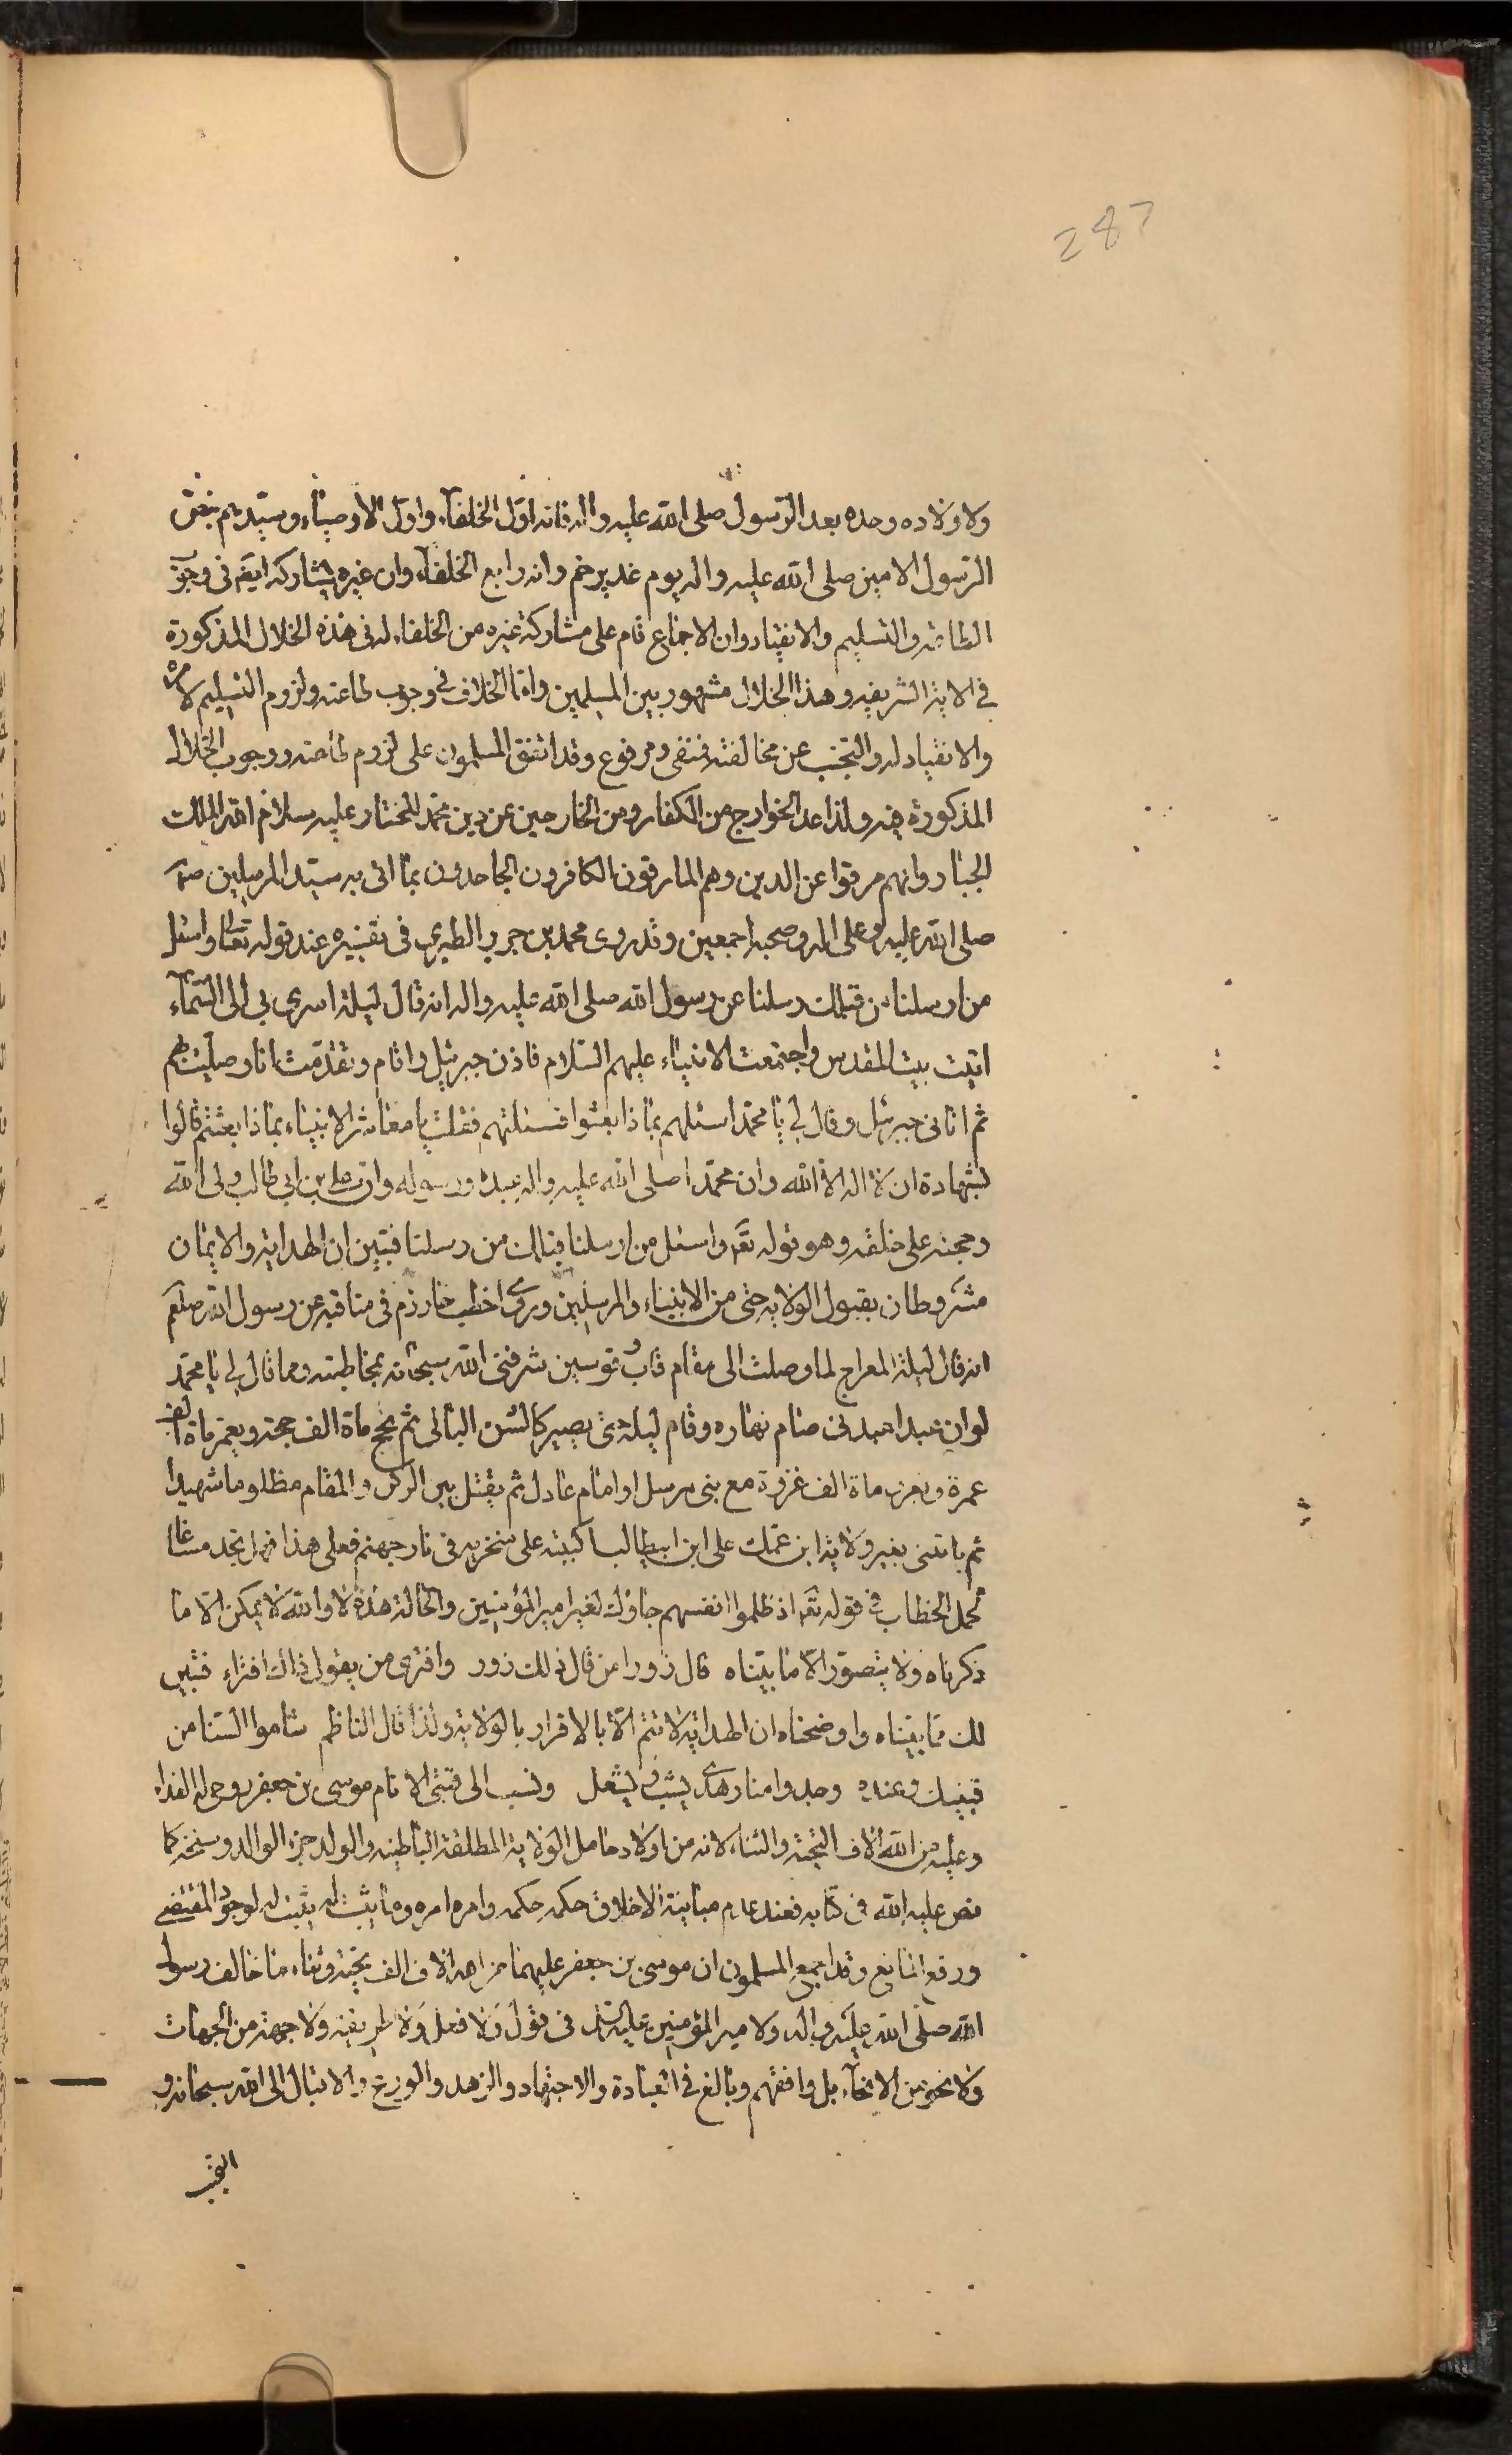 287
ولاولاده وحده بعد الرسول صلى الله عليه واله فانه اول الخلفاء واول الاوصياء وسيدهم بنص
الرسول الامين صلى الله عليه واله يوم غدير خم وانه رابع الخلفاء وان غيره يشاركه ايضا فى وجوب
الطاعة والتسليم والانقياد وان الاجماع قام على مشاركة غيره من الخلفاء له فى هذه الخلال المذكورة
فى الاية الشريفه وهذا الخلاف مشهور بين المسلمين واما الخلاف فى وجوب طاعته ولزوم التسليم لامره
والانقياد له والتجنب عن مخالفته فمنفى ومرفوع وقد اتفق المسلمون على لزوم طاعته ووجوب الخلال
المذكورة فيه ولذا عد الخوارج من الكفار ومن الخارجين عن دين محمد المختار عليه سلام الله الملك
الجبار وانهم مرقوا عن الدين وهم المارقون الكافرون الجاحدون بما اتى به سيد المرسلين
صلى الله عليه وعلى اله وصحبه اجمعين وقد روى محمد بن جرير الطبرى فى تفسيره عند قوله تعالى واسئل
من ارسلنا من قبلك رسلنا عن رسول الله صلى الله عليه واله انه قال ليلة اسرى بى الى السماء
اتيت بيت المقدس واجتمعت الانبياء عليهم السلام فاذن جبرئيل واقام وتقدمت انا وصليت بهم
ثم اتانى جبرئيل وقال لى يا محمد اسئلهم بماذا بعثوا فسئلتهم فقلت يا معاشر الانبياء بماذا بعثتم قالوا
بشهادة ان لا اله الا الله وان محمدا صلى الله عليه واله عبده ورسوله وان على بن ابى طالب ولى الله
وحجته على خلقه وهو قوله تع واسئل من ارسلنا قبلك من رسلنا فتبين ان الهداية والايمان
مشروطان بقبول الولاية حتى من الانبياء والمرسلين وروى اخطب خوارزم فى مناقبه عن رسول الله صلعم
انه قال ليلة المعراج لما وصلت الى مقام قاب قوسين شرفنى الله سبحانه بمخاطبته ومما قال لى يا محمد
لو ان عبدا عبدنى صام نهاره وقام ليله حتى يصير كالشن البالى ثم يحج ماة الف حجة ويعمر ماة الف
عمرة ويغزو ماة الف غزوة مع نبى مرسل او امام عادل ثم يقتل بين الركن والمقام مظلوما شهيدا
ثم ياتنى بغير ولاية ابن عمك على ابن ابيطالب اكبيته على منخريه فى نار جهنم فعلى هذا فهل تجد مساغا
لحمل الخطاب فى قوله تع اذ ظلموا انفسهم جاؤك لغير امير المؤمنين والحالة هذه لا والله لا يمكن الا ما
ذكرناه ولا يتصور الا ما بيناه قال زورا من قال ذلك زور وافترى من يقول ذاك افتراء فتبين
لك مما بيناه واوضحناه ان الهداية لا تتم الا بالاقرار بالولاية ولذا قال الناظم شاموا السنا من
قبتيك وعنده وجدوا منار هدى يشب ويشعل ونسب الى قبتى الامام موسى بن جعفر روحى له الفداء
وعليه من الله الاف التحية والثناء لانه من اولاد حامل الولاية المطلقة الباطنية والولد جزء الوالد وسنخه كما
نص عليه الله فى كتابه فعند عدم مباينة الاخلاق حكمه حكمه وامره امره وما يثبت له يثبت له لوجود المقتضى
ورفع المانع وقد اجمع المسلمون ان موسى بن جعفر عليهما من الله الاف الف تحية وثناء ما خالف رسول
الله صلى الله عليه واله ولا امير المؤمنين عليه السلام فى قول ولا فعل ولا طريقة ولا جهة من الجهات
ولا نحو من الانحاء بل وافقهم وبالغ فى العبادة والاجتهاد والزهد والورع والاقبال الى الله سبحانه و